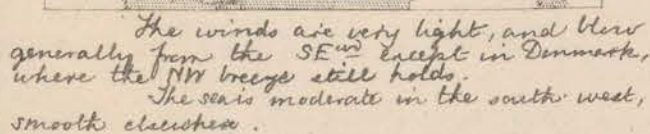 The winds are very light, and blow
generally from the SEwd except in Denmark,
where the NW breeze still holds.
The sea is moderate in the south west,
smooth elsewhere.